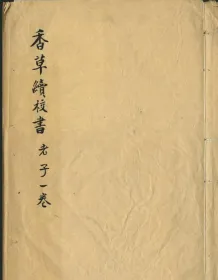 香草續校書 老子一卷